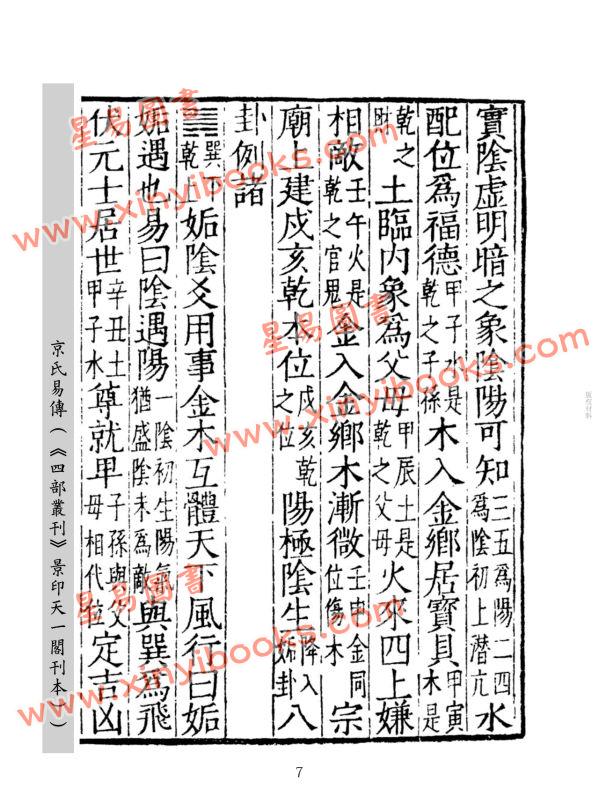 實陰虛明暗之象陰陽可知三五為陽二四為陰初上潛亢水
配位為福德甲子水是乾之子孫木入金鄉居寶貝甲寅木是
乾之財土臨內象為父母甲辰土是乾之父母火來四上嫌
相敵壬午火是乾之官鬼金入金鄉木漸微壬申金同位傷木宗
廟上建戌亥乾本位戌亥乾之位陽極陰生降入姤卦八
卦例諸
䷫巽下乾上姤陰爻用事金木互體天下風行曰姤
姤遇也易曰陰遇陽一陰初生陽氣猶盛陰未為敵與巽為飛
伏元士居世辛丑土甲子水尊就卑子孫與父母相代位定吉凶
京氏易傳（《四部叢刊》景印天一閣刊本一）
7
星易圖書
www.xinyibooks.com
星易圖書
www.xinyibooks.com
星易圖書
www.xinyibooks.com